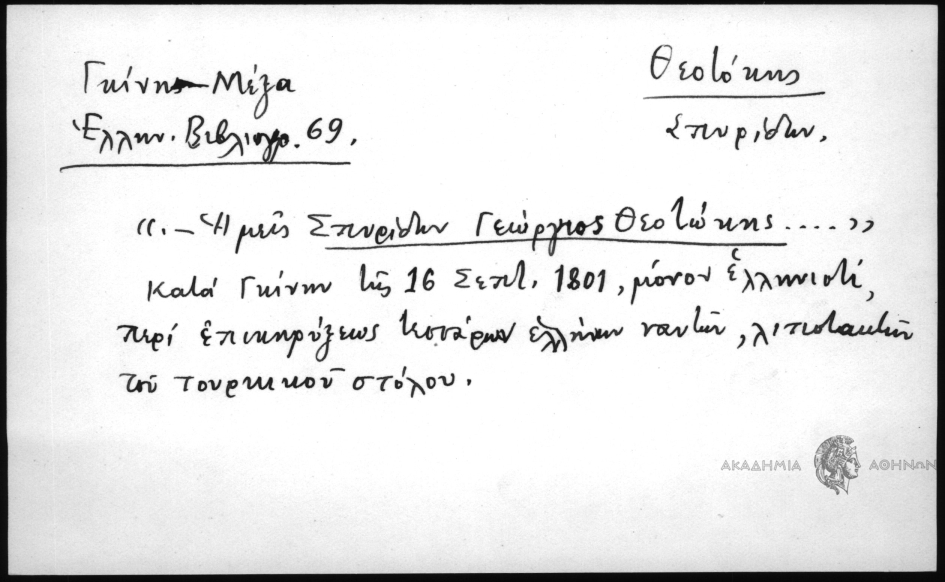 Γκίνης-Μέξα
Ἑλλην. Βιβλιογρ. 69.
Θεοτόκης
Σπυρίδων.
«.- Ἡμεῖς Σπυρίδων Γεώργιος Θεοτώκης.....»
Κατά Γκίνην τῆς 16 Σεπτ. 1801, μόνον ἑλληνιστί,
περί ἐπικηρύξεως τεσσάρων ἑλλήνων ναυτῶν, λιποτακτῶν
τοῦ τουρκικοῦ στόλου.
ΑΚΑΔΗΜΙΑ ΑΘΗΝΩΝ